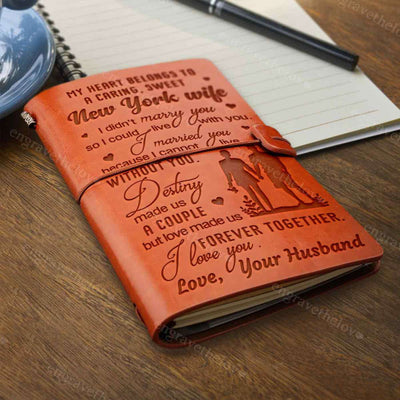 MY HEART BELONGS TO
A CARING, SWEET
New York wife
I didn't marry you
so I could live with you,
I married you
because I cannot live
WITHOUT YOU.
Destiny
made us
A COUPLE
but love made us
FOREVER TOGETHER.
I love you.
Love, Your Husband
engravethelove
engravethelove
engravethelove
engravethelove
engravethelove